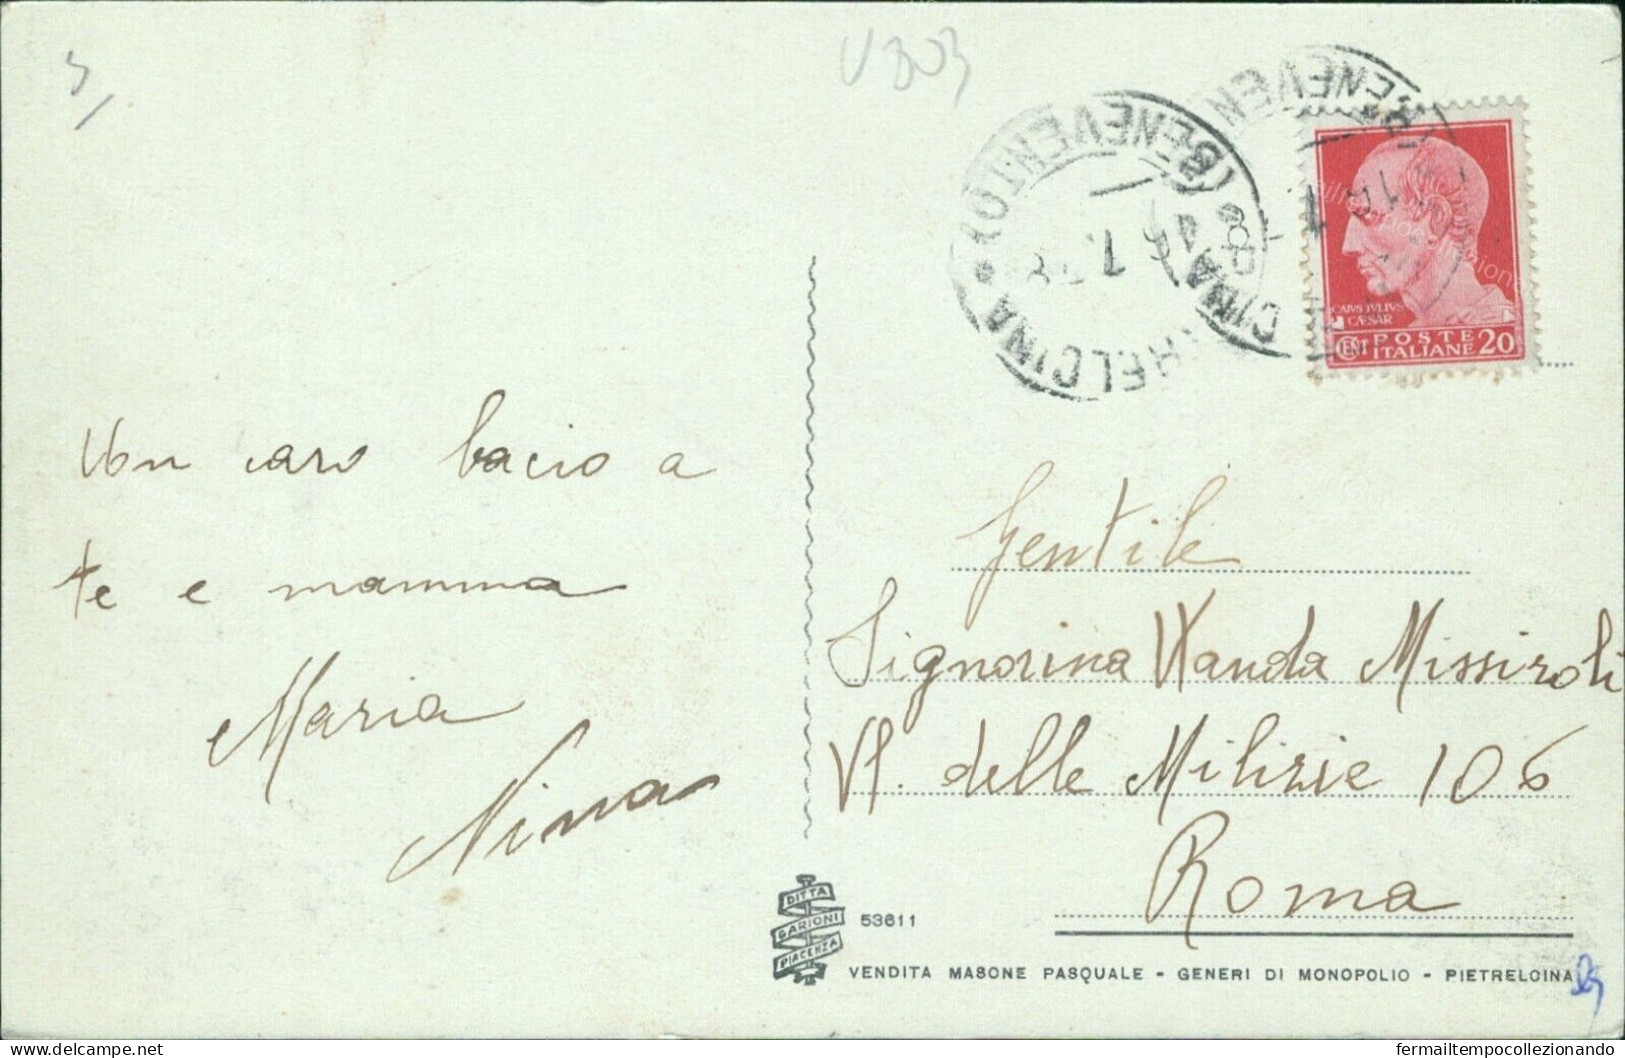 V 803
PIETRELCINA * (BENEVENTO)
CINA * (BENEVEN
CAIVS IVLIVS
CÆSAR
CENT POSTE
ITALIANE 20
Un caro bacio a
te e mamma
Maria
Nina
Gentile
Signorina Wanda Missiroli
Vl. delle Milizie 106
Roma
DITTA
GARIONI
PIACENZA
53611
VENDITA MASONE PASQUALE - GENERI DI MONOPOLIO - PIETRELCINA
delcampe.net
fermailtempocollezionando